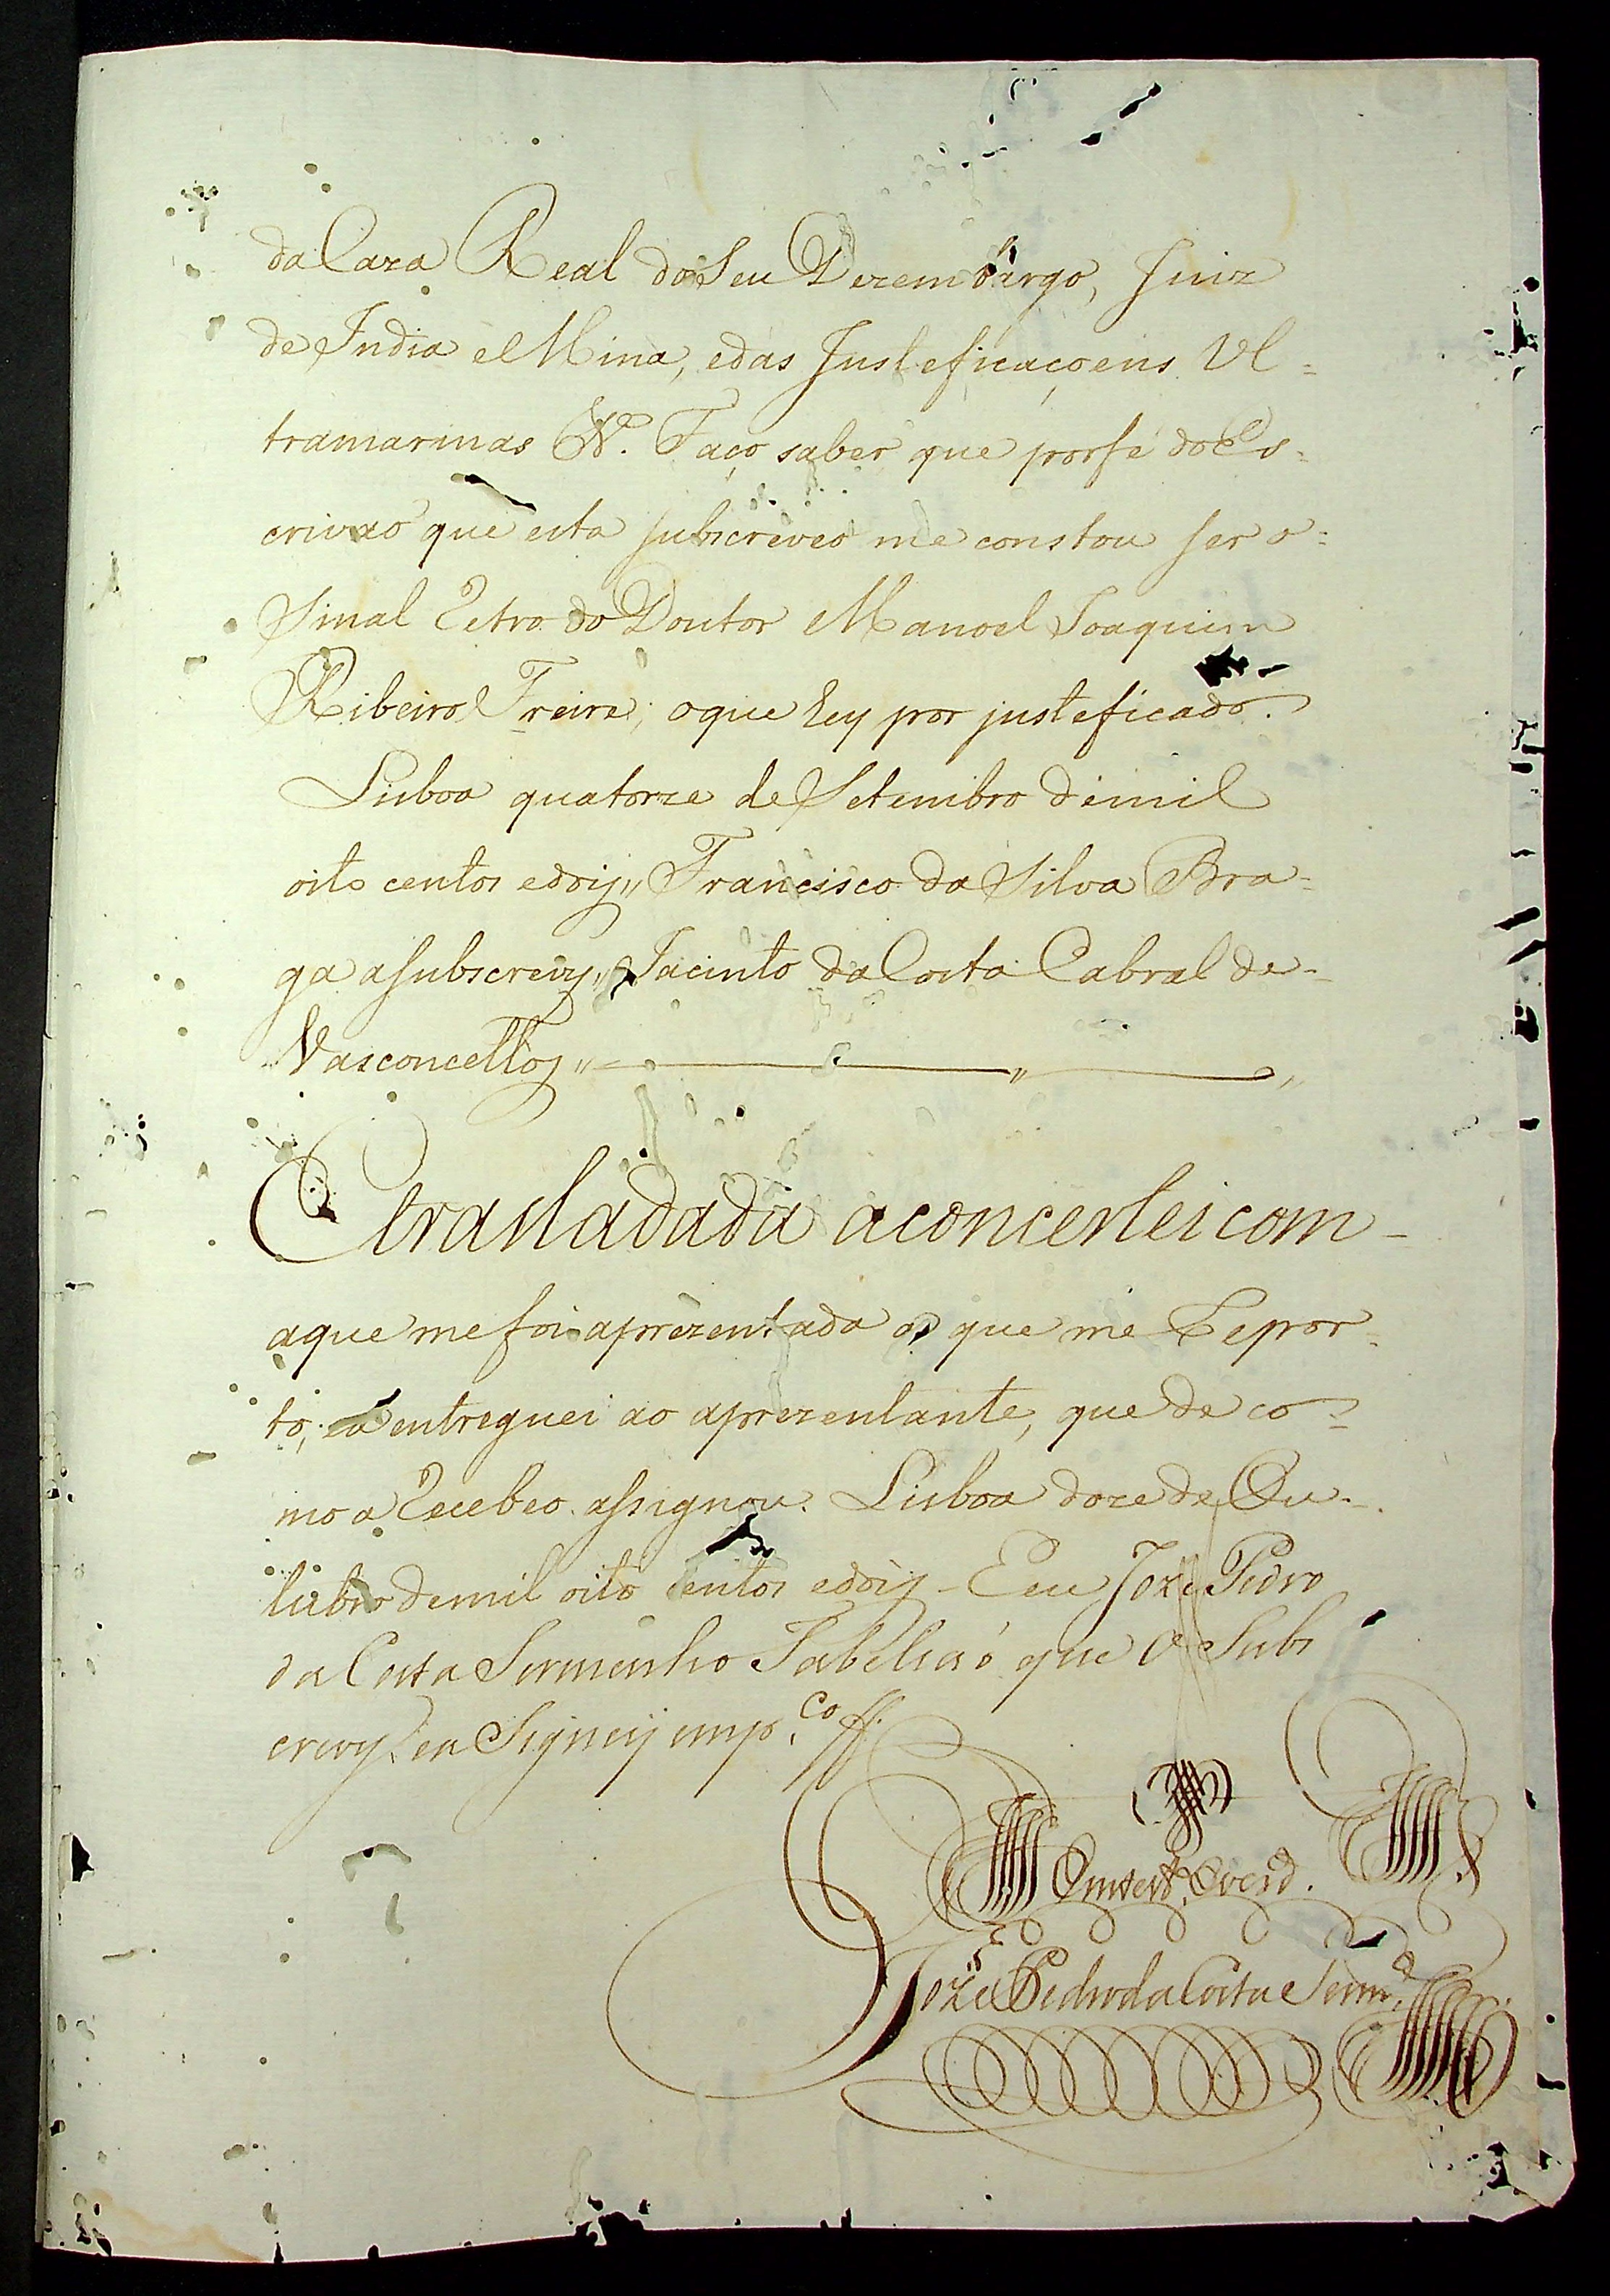 da Caza Real do Seu Dezembargo, Juiz
de India e Mina, e das Justeficaçoens Ul=
tramarinas &ª. Faço saber que por fé do Es=
crivaõ que esta subscreveo me constou ser o=
Sinal retro do Doutor Manoel Joaquim
Ribeiro Freire; o que hey por justeficado.
Lisboa quatorze de Setembro de mil
oito centos e dois,, Francisco da Silva Bra=
ga a subscrevy,, Jacinto da Costa Cabral de-
Vasconcellos,,
E trasladada a concertei com-
a que me foi aprezentada a que me repor=
to, e a entreguei ao aprezentante, que de co=
mo a recebeo assignou. Lisboa doze de Ou=
tubro de mil oito centos e dois - E eu Joze Pedro
da Costa Sermenho Tabeliaõ que o Subs
crevy, e a Signeij em p.co
Joze Pedro da Costa Serm.º